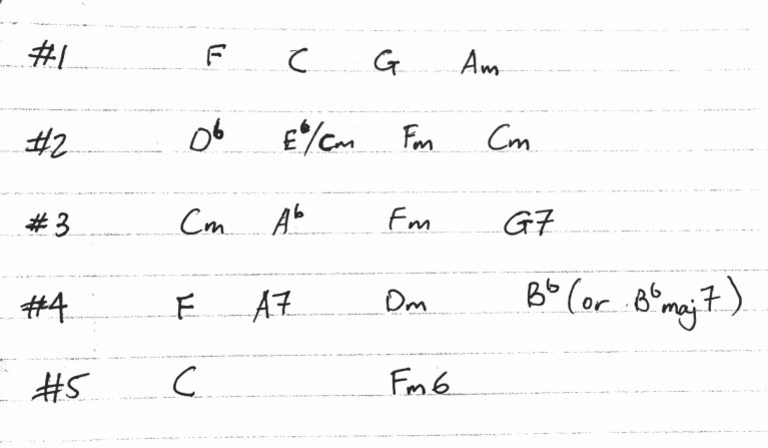 #1 F C G Am
#2 Db Eb/Cm Fm Cm
#3 Cm Ab Fm G7
#4 F A7 Dm Bb (or Bbmaj7)
#5 C Fm6